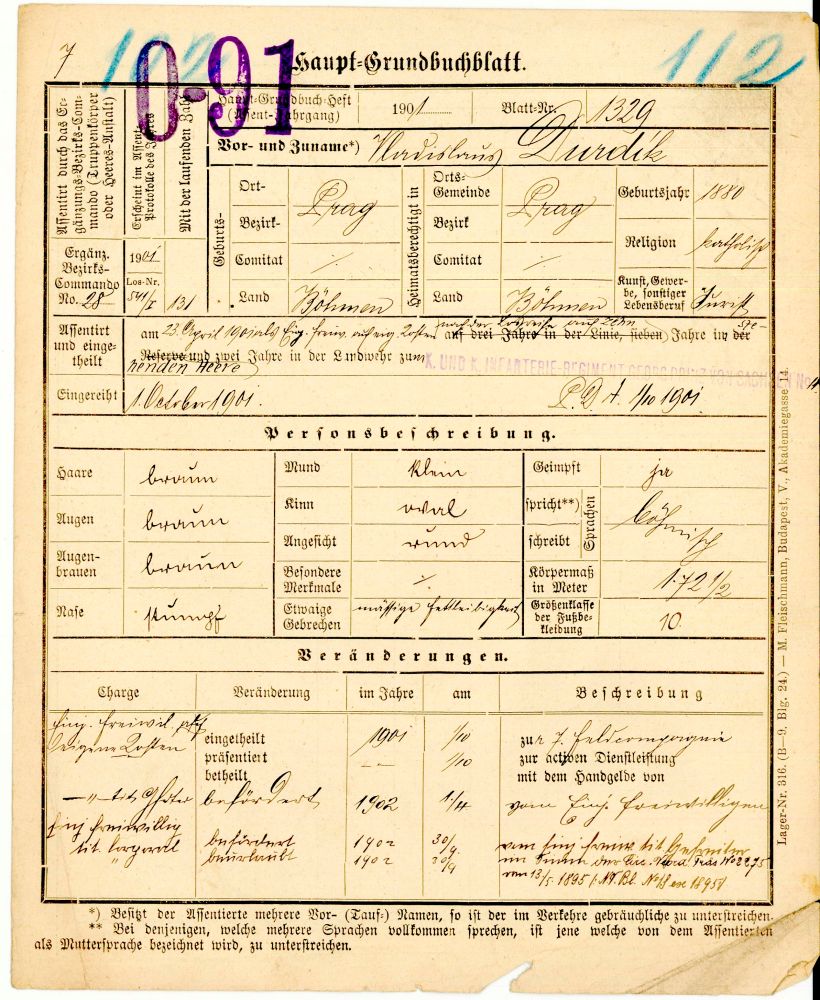 7
112
0-91
Haupt-Grundbuchblatt.
Assentirt durch das Er-
gänzungs-Bezirks-Com-
mando (Truppenkörper
oder Heeres-Anstalt)
Erscheint im Assent-
Protokolle des Jahres
Mit der laufenden Zahl
Haupt-Grundbuch-Heft
(Assent-Jahrgang)
1901
Blatt-Nr. 1329
Vor- und Zuname*) Wladislaus Durdík
Ergänz.
Bezirks-
Commando
No. 28
1901
Los-Nr.
541/I
131
Geburts-
Ort- Prag
Bezirk-
Comitat ./.
Land Böhmen
Heimatsberechtigt in
Orts-
Gemeinde Prag
Bezirk
Comitat ./.
Land Böhmen
Geburtsjahr 1880
Religion katholisch
Kunst, Gewer-
be, sonstiger
Lebensberuf
Jurist
Assentirt
und einge-
theilt
am 23. April 1901 als Einj. freiw. auf eig. Kosten auf drei Jahre in der Linie, sieben Jahre in der ste-
Reserve und zwei Jahre in der Landwehr zum
henden Heere
K. UND K. INFANTERIE-REGIMENT GEORG PRINZ VON SACHSEN No 11
Eingereiht
1. October 1901.
1/10 1901.
Personsbeschreibung.
Haare braun
Augen braun
Augen-
brauen braun
Nase stumpf
Mund klein
Kinn oval
Angesicht rund
Besondere
Merkmale ./.
Etwaige
Gebrechen mässige Fettleibigkeit
Geimpft ja
spricht**)
schreibt
Sprachen
böhmisch
Körpermaß
in Meter 1·72 1/2
Größenklasse
der Fußbe-
kleidung 10.
Veränderungen.
Charge Veränderung im Jahre am Beschreibung
Einj. freiwil. auf
eigene Kosten
eingetheilt 1901 1/10 zur 7. Feldcompagnie
präsentirt — — 1/10 zur activen Dienstleistung
betheilt mit dem Handgelde von
—"— tit. Gfreiter befördert 1902 1/4 vom Einj. freiwilligen
Einj. freiwillig
tit. Corporal befördert 1902 30/9. vom Einj. freiw. tit. Gefreiter
" beurlaubt 1902 30/9 im Sinne der Präs. No 2275
von 13/5. 1895 No 18 ex 1895
*) Besitzt der Assentierte mehrere Vor- (Tauf-) Namen, so ist der im Verkehre gebräuchliche zu unterstreichen.
** Bei denjenigen, welche mehrere Sprachen vollkommen sprechen, ist jene welche von dem Assentierten
als Muttersprache bezeichnet wird, zu unterstreichen.
Lager-Nr. 316. (B—9, Blg. 24.) — M. Fleischmann, Budapest, V., Akademiegasse